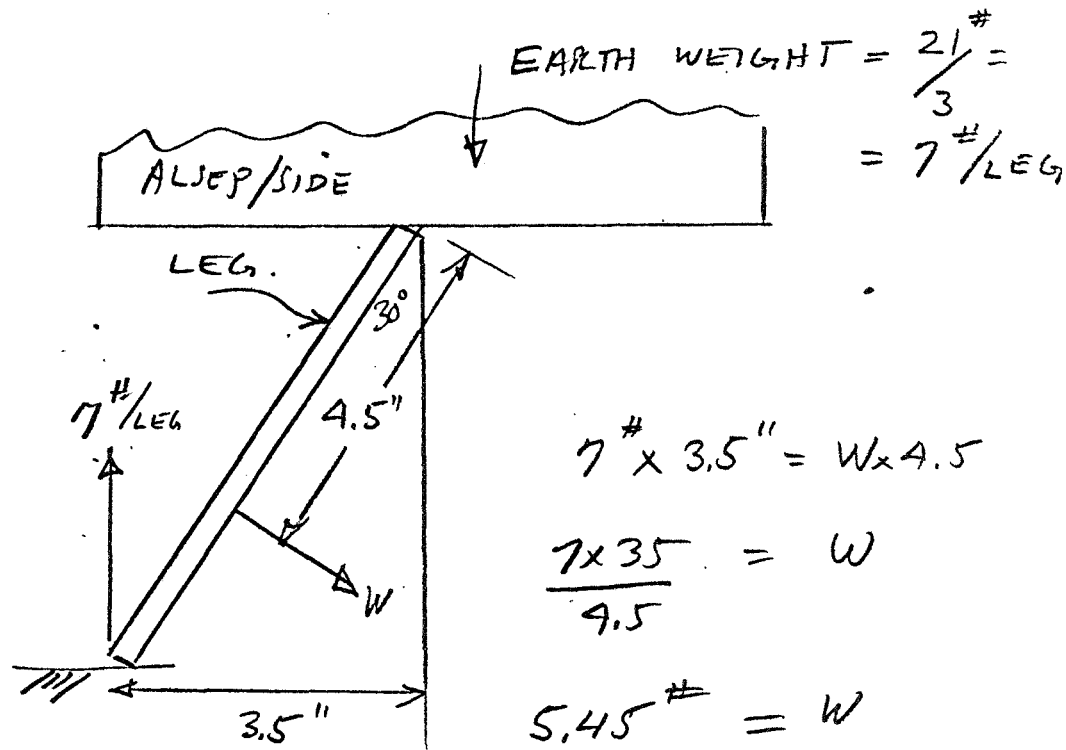 EARTH WEIGHT = 21#/3 =
= 7#/LEG
ALSEP/SIDE
LEG.
30°
7#/LEG
4.5"
7# x 3.5" = Wx4.5
7x35/4.5 = W
W
3.5"
5.45# = W